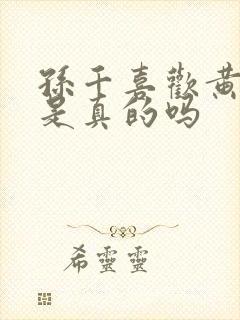 孫千喜歡黄
是真的吗
希靈靈